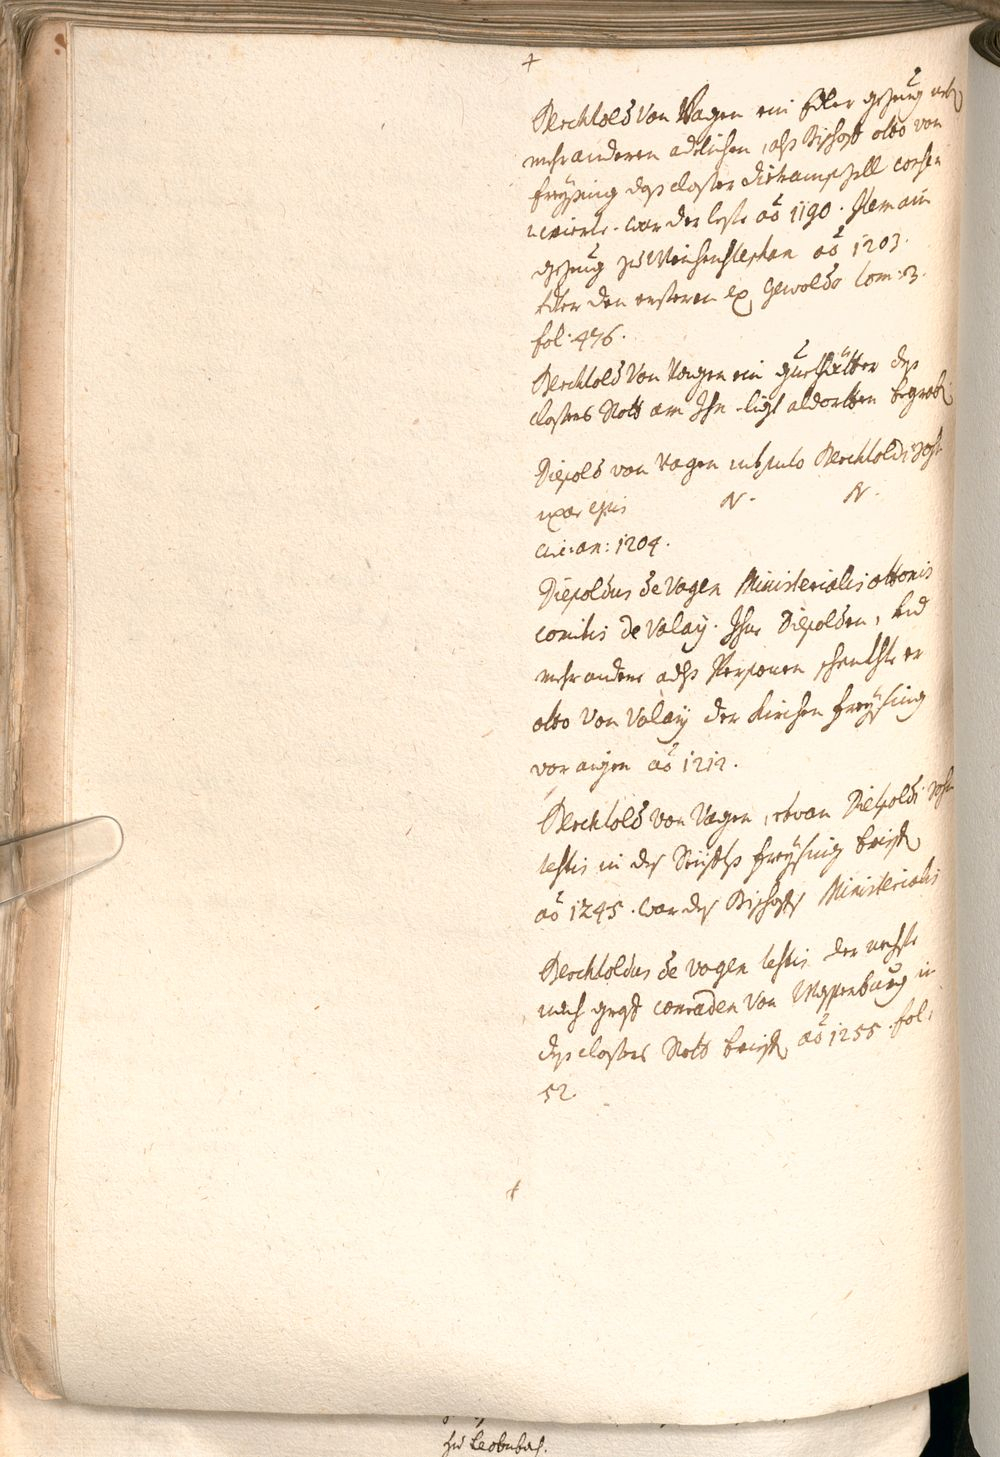 †
Berchtold Von Vagen ein Edler gezeug nebē
mehr anderen adelichen, alß Bischoff otto von
freysing deß closter dietrampszell conse-
crierte. war der leste aõ 1190. Item ain
gezeug zu Weihenstephan aõ 1203.
Eder den ersteren ex Gewoldo tom: 3.
fol: 476.
Berchtold Von Vagen ein guetthätter deß
closters Rott am Ihn. ligt aldortten begrabē
Diepold von Vagen Berchtoldi
uxor eius N. N.
an: 1204.
Diepoldus de Vagen Ministerialis ottonis
comitis de Valaÿ. Disen Diepolden, und
mehr andere Personen schenkhte er
otto Von Valaÿ der Kirchen freÿsing
vor aigen aõ 1212.
Berchtold Von Vagen, etwan Diepoldi sohn
testis in deß Stüffts freÿsing brieffē
aõ 1245. war deß Bischoffs Ministerialis
Berchtoldus de Vagen testis der nechste
nach graff conraden Von Wasserburg in
deß closters Rott brieffē aõ 1255. fol:
52.
†
zu Leobnbach.